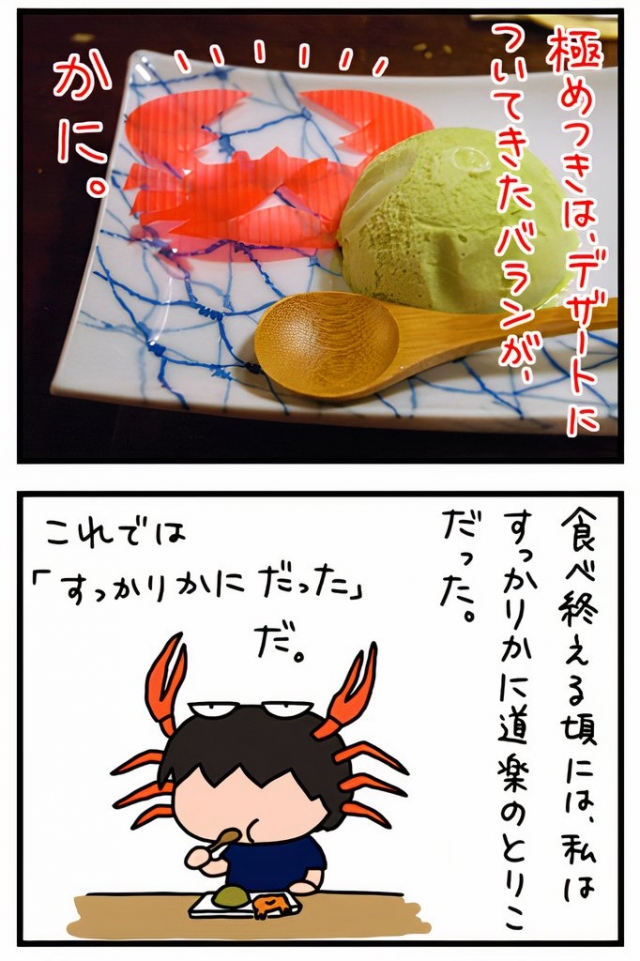 極めつきは、デザートに
ついてきたバランが、
かに。
食べ終える頃には、私は
すっかりかに道楽のとりこ
だった。
これでは
「すっかりかにだった」
だ。